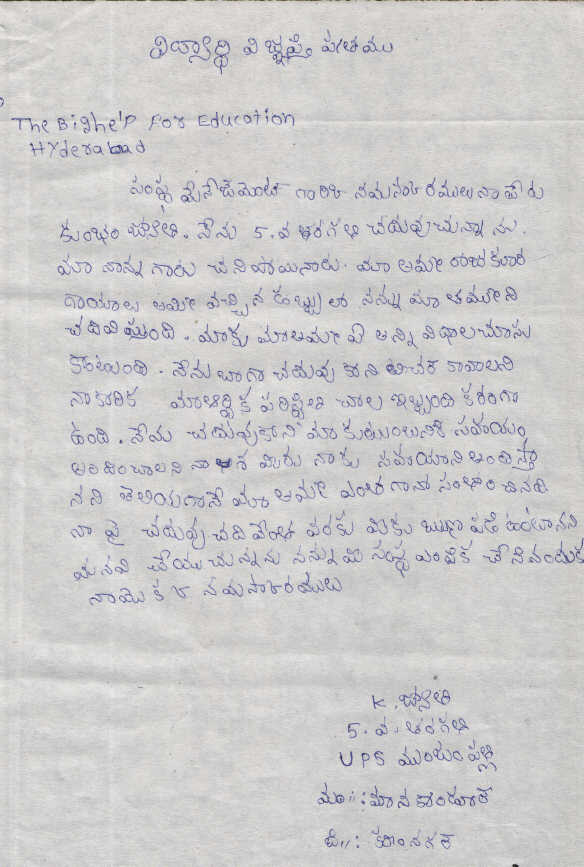 విద్యార్థి విజ్ఞప్తి పత్రము
The Bighelp For Education
Hyderabad
సంస్థ మేనేజిమెంట్ గారికి నమస్కారములు నా పేరు
కుంభం జ్యోతి. నేను 5.వ తరగతి చదువుచున్నాను.
మా నాన్న గారు చనిపోయినారు. మా అమ్మ కూర
గాయాలు అమ్మి వచ్చిన డబ్బులతో నన్ను మా తమ్ముని
చదివిస్తుంది. మాకు మా అమ్మ ఏ అన్ని విధాల చూసు
కొంటుంది. నేను బాగా చదువుకొని టీచర్ కావాలని
నా కోరిక మా ఆర్థిక పరిస్థితి చాల ఇబ్బంది కరంగా
ఉంది. నేను చదువుకొని మా కుటుంబానికి సహాయం
అందించాలని నా ఆశ మీరు నాకు సహాయాన్ని అందిస్తా
రని తెలియగానే మా అమ్మ ఎంతగానో సంతోషించినది
నా పై చదువు చదివేంత వరకు మీకు ఋణపడి ఉంటానని
మనవి చేయుచున్నాను నన్ను మీ సంస్థ ఎంపిక చేసినందుకు
నా యొక్క నమస్కారములు
K. జ్యోతి
5. వ. తరగతి
UPS ముంజంపల్లి
మం॥: మానకొండూర్
జి॥: కరీంనగర్